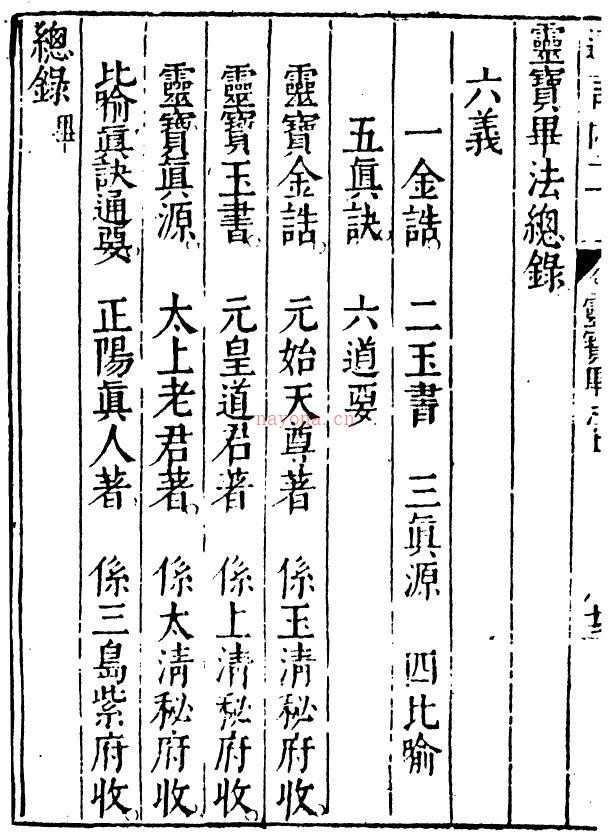 靈寶畢法
靈寶畢法總錄
六義
一金誥 二玉書 三眞源 四比喻
五眞訣 六道要
靈寶金誥 元始天尊著 係玉清秘府收
靈寶玉書 元皇道君著 係上清秘府收
靈寶眞源 太上老君著 係太清秘府收
比喻眞訣通要 正陽眞人著 係三島紫府收
總錄 畢
nayona.cn